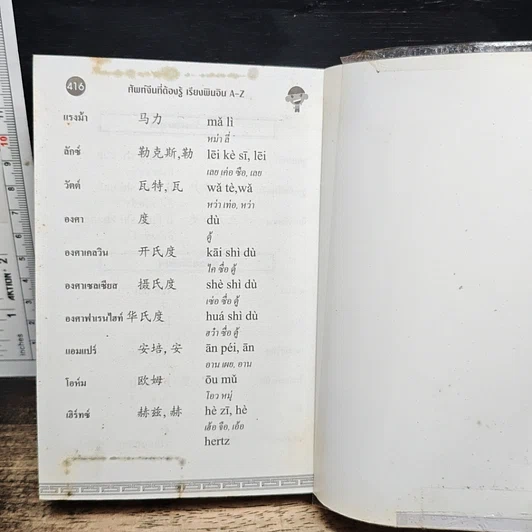 416 ศัพท์จีนที่ต้องรู้ เรียงพินอิน A-Z
แรงม้า 马力 mǎ lì
หม่า ลี่
ลักซ์ 勒克斯,勒 lēi kè sī, lēi
เลย เค่อ ซือ, เลย
วัตต์ 瓦特,瓦 wǎ tè,wǎ
หว่า เท่อ, หว่า
องศา 度 dù
ตู้
องศาเคลวิน 开氏度 kāi shì dù
ไค ซื่อ ตู้
องศาเซลเซียส 摄氏度 shè shì dù
เซ่อ ซื่อ ตู้
องศาฟาเรนไฮท์ 华氏度 huá shì dù
ฮว๋า ซื่อ ตู้
แอมแปร์ 安培,安 ān péi, ān
อาน เผย, อาน
โอห์ม 欧姆 ōu mǔ
โอว หมู่
เฮิร์ทซ์ 赫兹,赫 hè zī, hè
เฮ้อ จือ, เฮ้อ
hertz
10
2
1
ACTION
inches